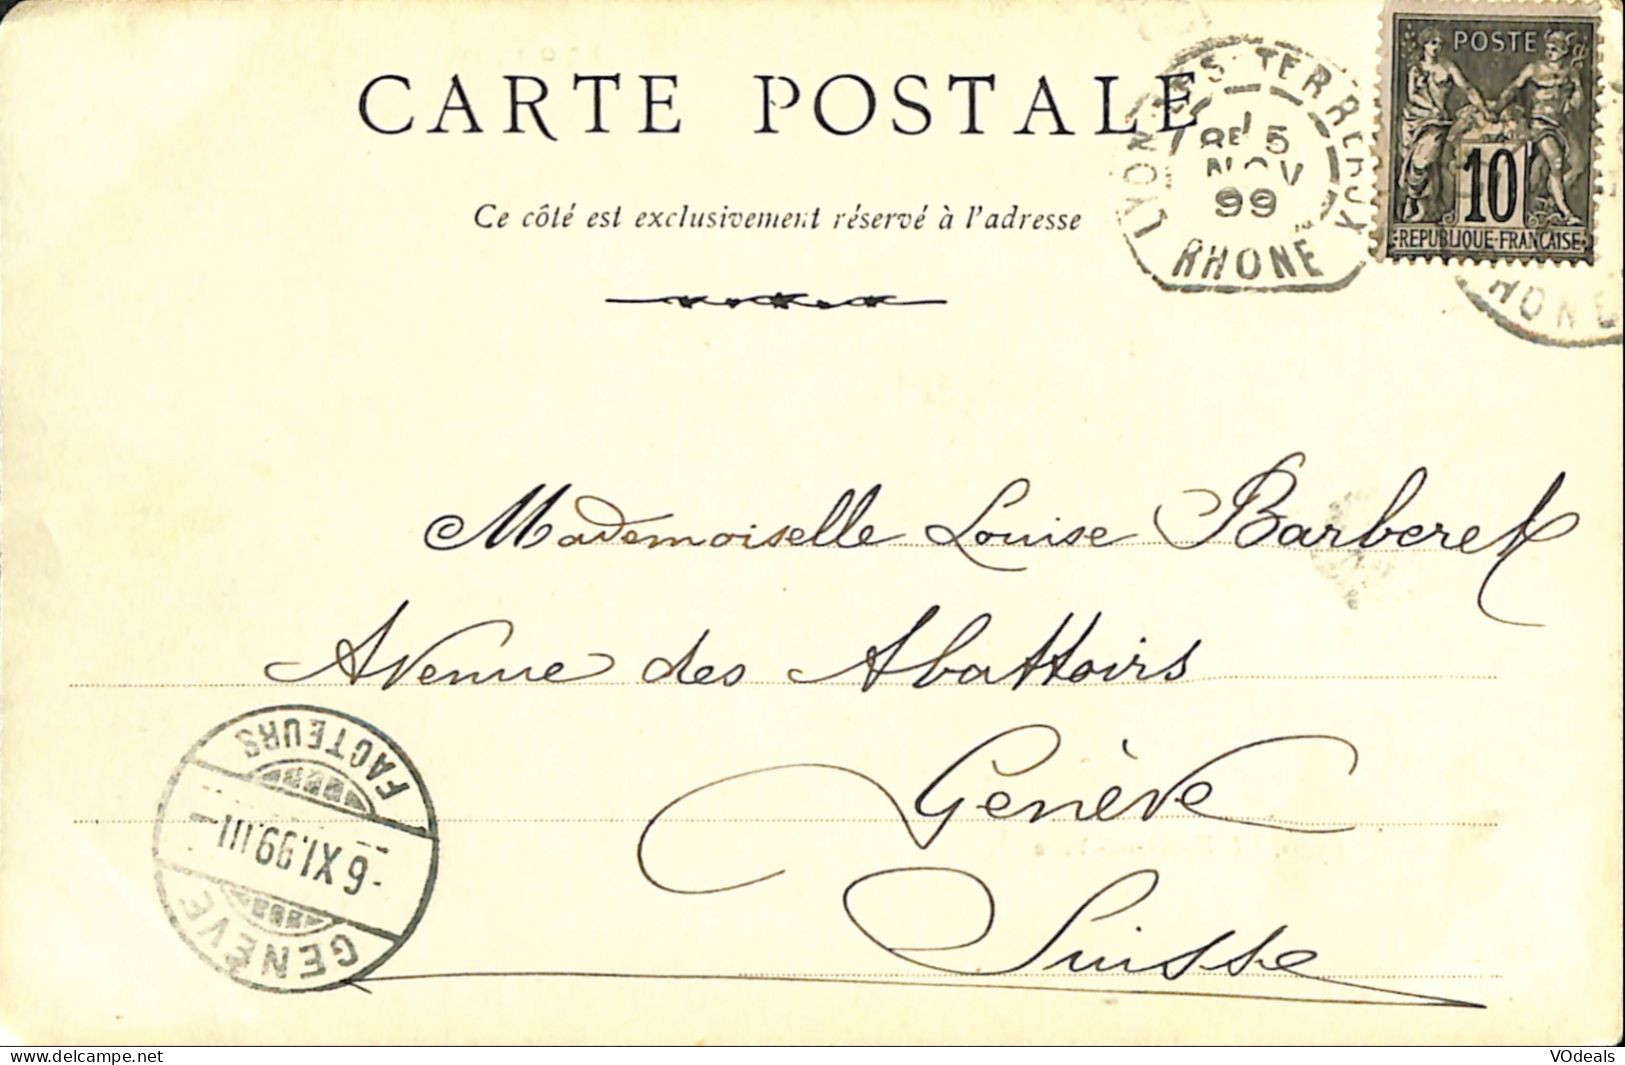 CARTE POSTALE
Ce côté est exclusivement réservé à l'adresse
LYON LES TERREAUX
5
NOV
99
RHONE
POSTE
10
REPUBLIQUE FRANÇAISE
HONE
Mademoiselle Louise Barberet
Avenue des Abattoirs
Genève
Suisse
GENÈVE
6.XI.99.III
FACTEURS
www.delcampe.net
VOdeals